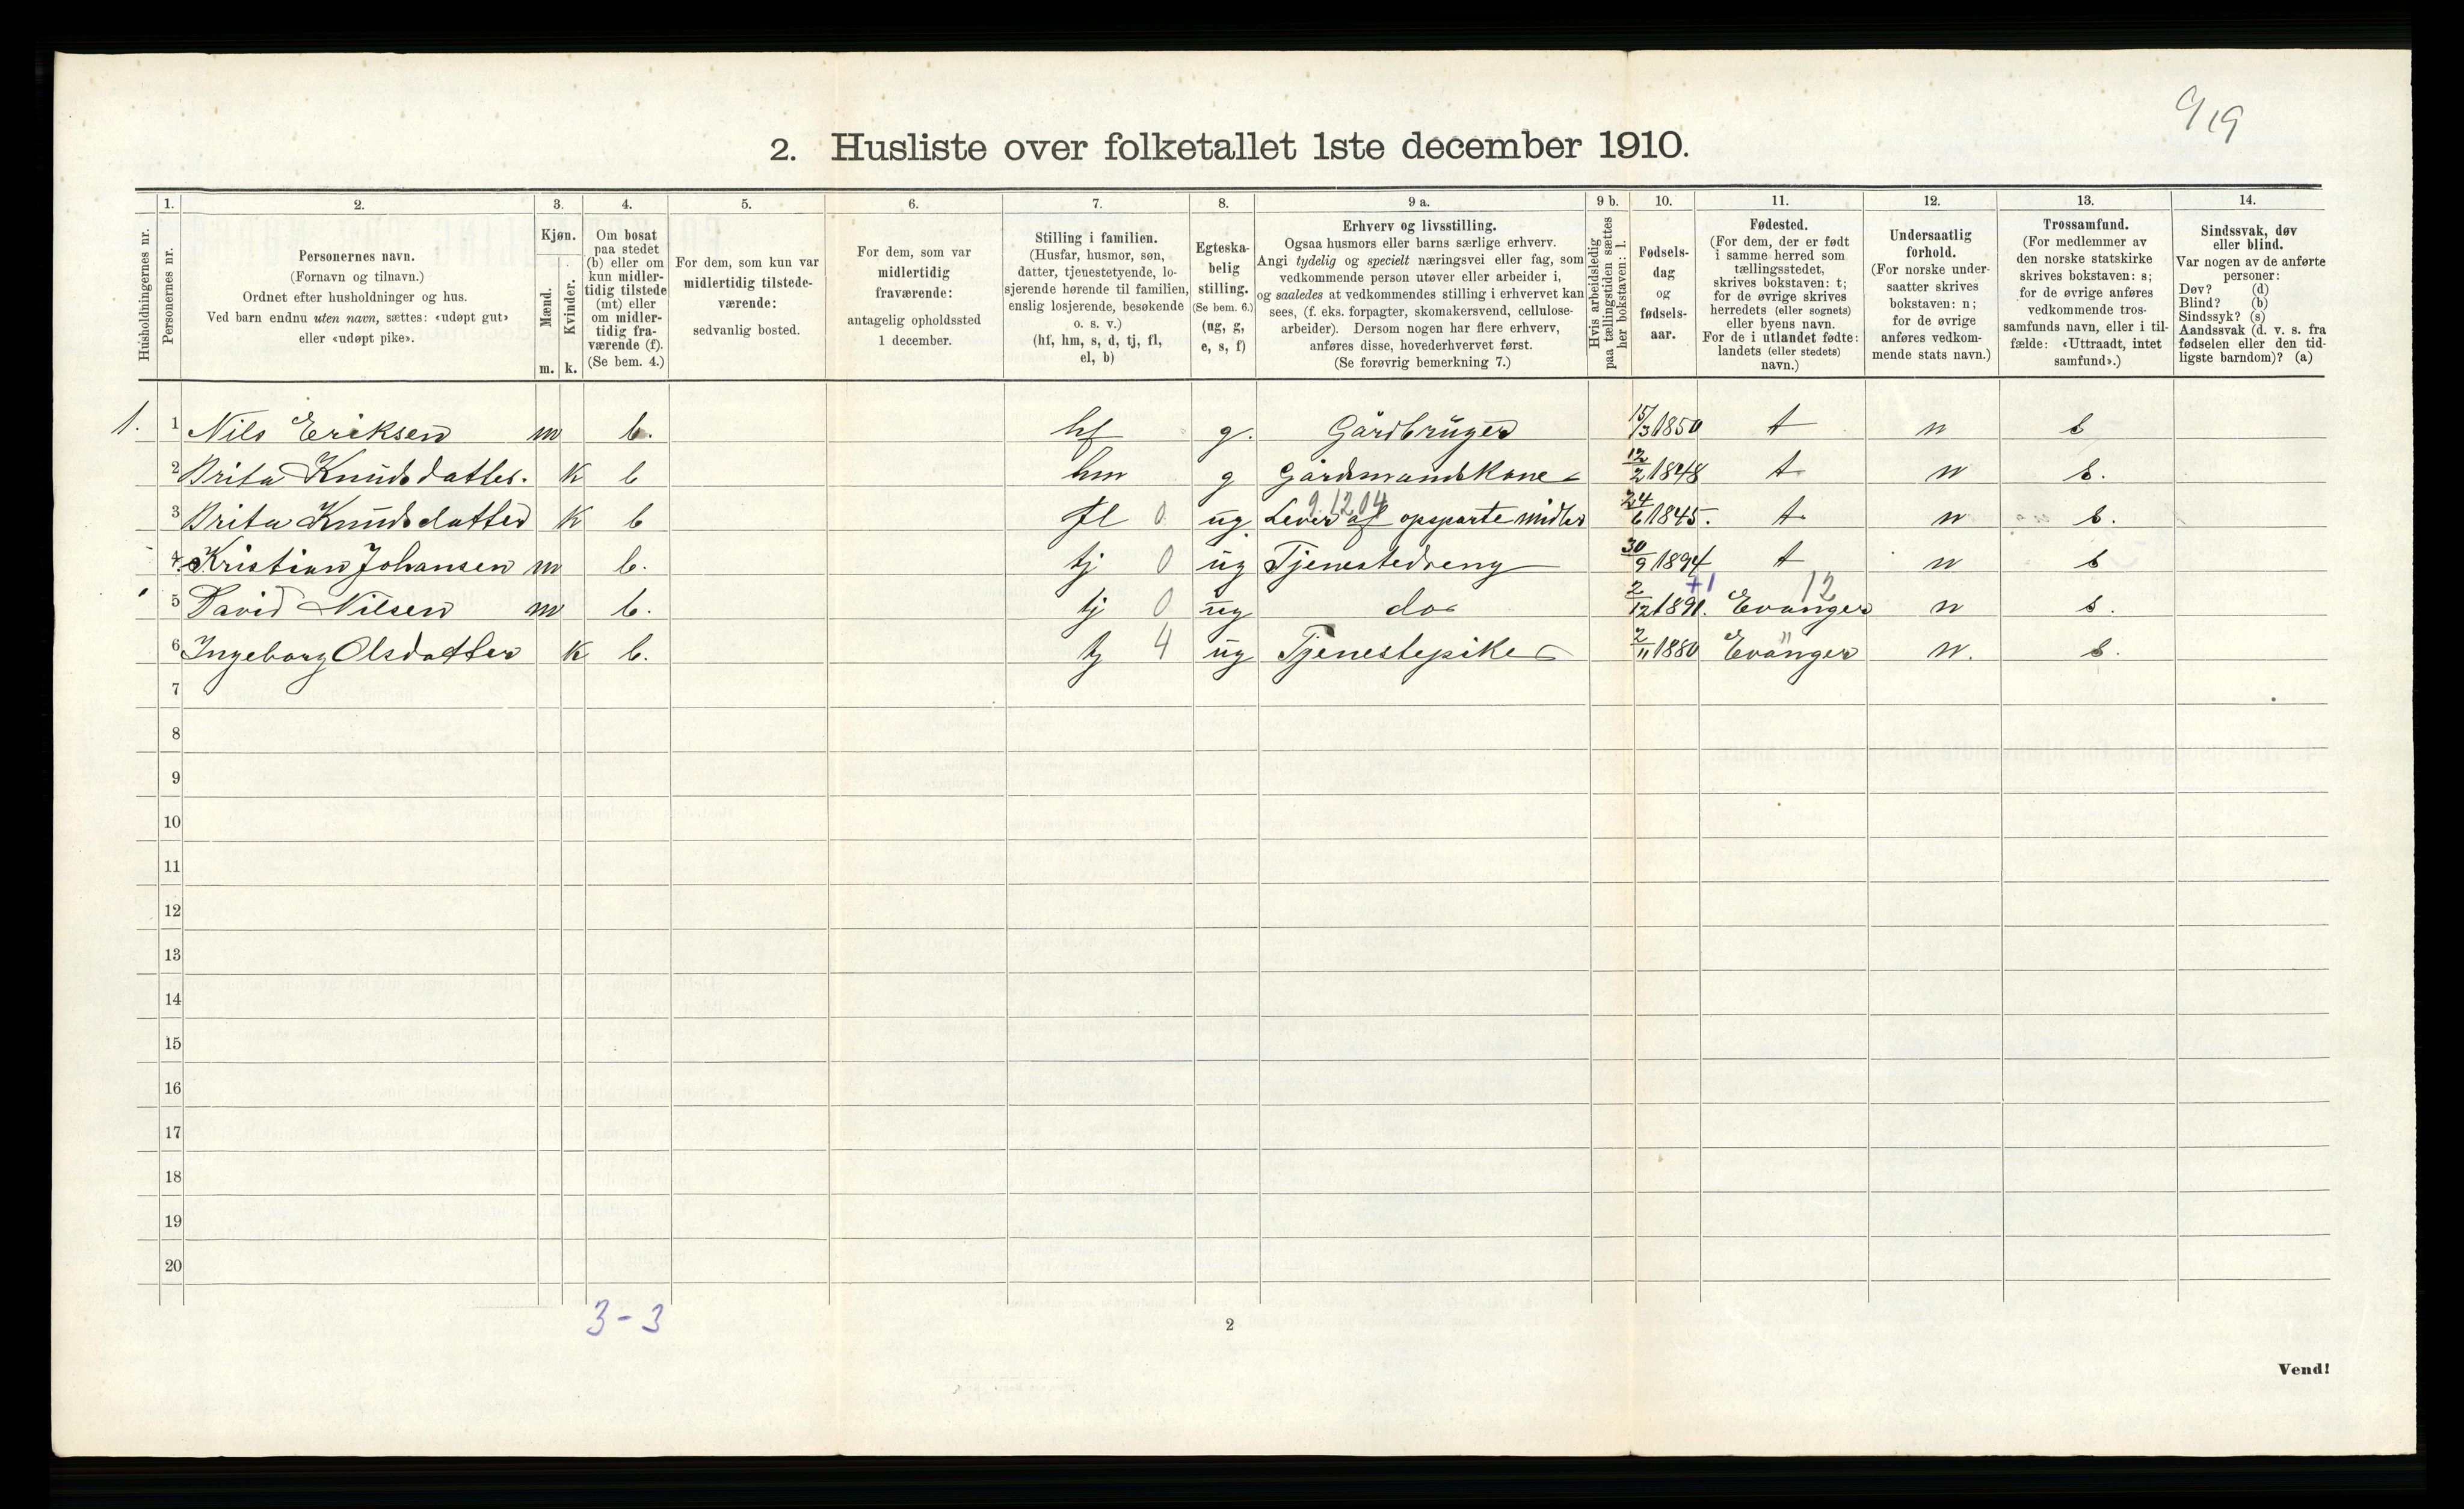 9/19
2. Husliste over folketallet 1ste december 1910.
1. 2. 3. 4. 5. 6. 7. 8. 9 a. 9 b. 10. 11. 12. 13. 14.
Husholdningernes nr.
Personernes nr.
Personernes navn.
(Fornavn og tilnavn.)
Ordnet efter husholdninger og hus.
Ved barn endnu uten navn, sættes: «udøpt gut»
eller «udøpt pike».
Kjøn.
Mænd.
Kvinder.
m. k.
Om bosat
paa stedet
(b) eller om
kun midler-
tidig tilstede
(mt) eller
om midler-
tidig fra-
værende (f).
(Se bem. 4.)
For dem, som kun var
midlertidig tilstede-
værende:
sedvanlig bosted.
For dem, som var
midlertidig
fraværende:
antagelig opholdssted
1 december.
Stilling i familien.
(Husfar, husmor, søn,
datter, tjenestetyende, lo-
sjerende hørende til familien,
enslig losjerende, besøkende
o. s. v.)
(hf, hm, s, d, tj, fl,
el, b)
Egteska-
belig
stilling.
(Se bem. 6.)
(ug, g,
e, s, f)
Erhverv og livsstilling.
Ogsaa husmors eller barns særlige erhverv.
Angi tydelig og specielt næringsvei eller fag, som
vedkommende person utøver eller arbeider i,
og saaledes at vedkommendes stilling i erhvervet kan
sees, (f. eks. forpagter, skomakersvend, cellulose-
arbeider). Dersom nogen har flere erhverv,
anføres disse, hovederhvervet først.
(Se forøvrig bemerkning 7.)
Hvis arbeidsledig
paa tællingstiden sættes
her bokstaven: l.
Fødsels-
dag
og
fødsels-
aar.
Fødested.
(For dem, der er født
i samme herred som
tællingsstedet,
skrives bokstaven: t;
for de øvrige skrives
herredets (eller sognets)
eller byens navn.
For de i utlandet fødte:
landets (eller stedets)
navn.)
Undersaatlig
forhold.
(For norske under-
saatter skrives
bokstaven: n;
for de øvrige
anføres vedkom-
mende stats navn.)
Trossamfund.
(For medlemmer av
den norske statskirke
skrives bokstaven: s;
for de øvrige anføres
vedkommende tros-
samfunds navn, eller i til-
fælde: «Uttraadt, intet
samfund».)
Sindssvak, døv
eller blind.
Var nogen av de anførte
personer:
Døv? (d)
Blind? (b)
Sindssyk? (s)
Aandssvak (d. v. s. fra
fødselen eller den tid-
ligste barndom)? (a)
1. 1 Nils Eriksen m b. hf g. Gårdbruger 15/3 1850 t n s
2 Brita Knudsdatter. k b hm g Gårdmandskone 12/2 1848 t n s.
9.1204
3 Brita Knudsdatter k b fl 0 ug. Lever af opsparte midler 24/6 1845. t n s.
4. Kristian Johansen m b. tj 0 ug Tjenestedreng 30/9 1894 t n s
+1 12
5 David Nilsen m b. tj 0 ug do 2/12 1891. Evanger n s.
6 Ingeborg Olsdatter k b. tj 4 ug Tjenestepike 2/11 1880 Evanger " n. s.
7
8
9
10
11
12
13
14
15
16
17
18
19
20
3-3
2
Vend!